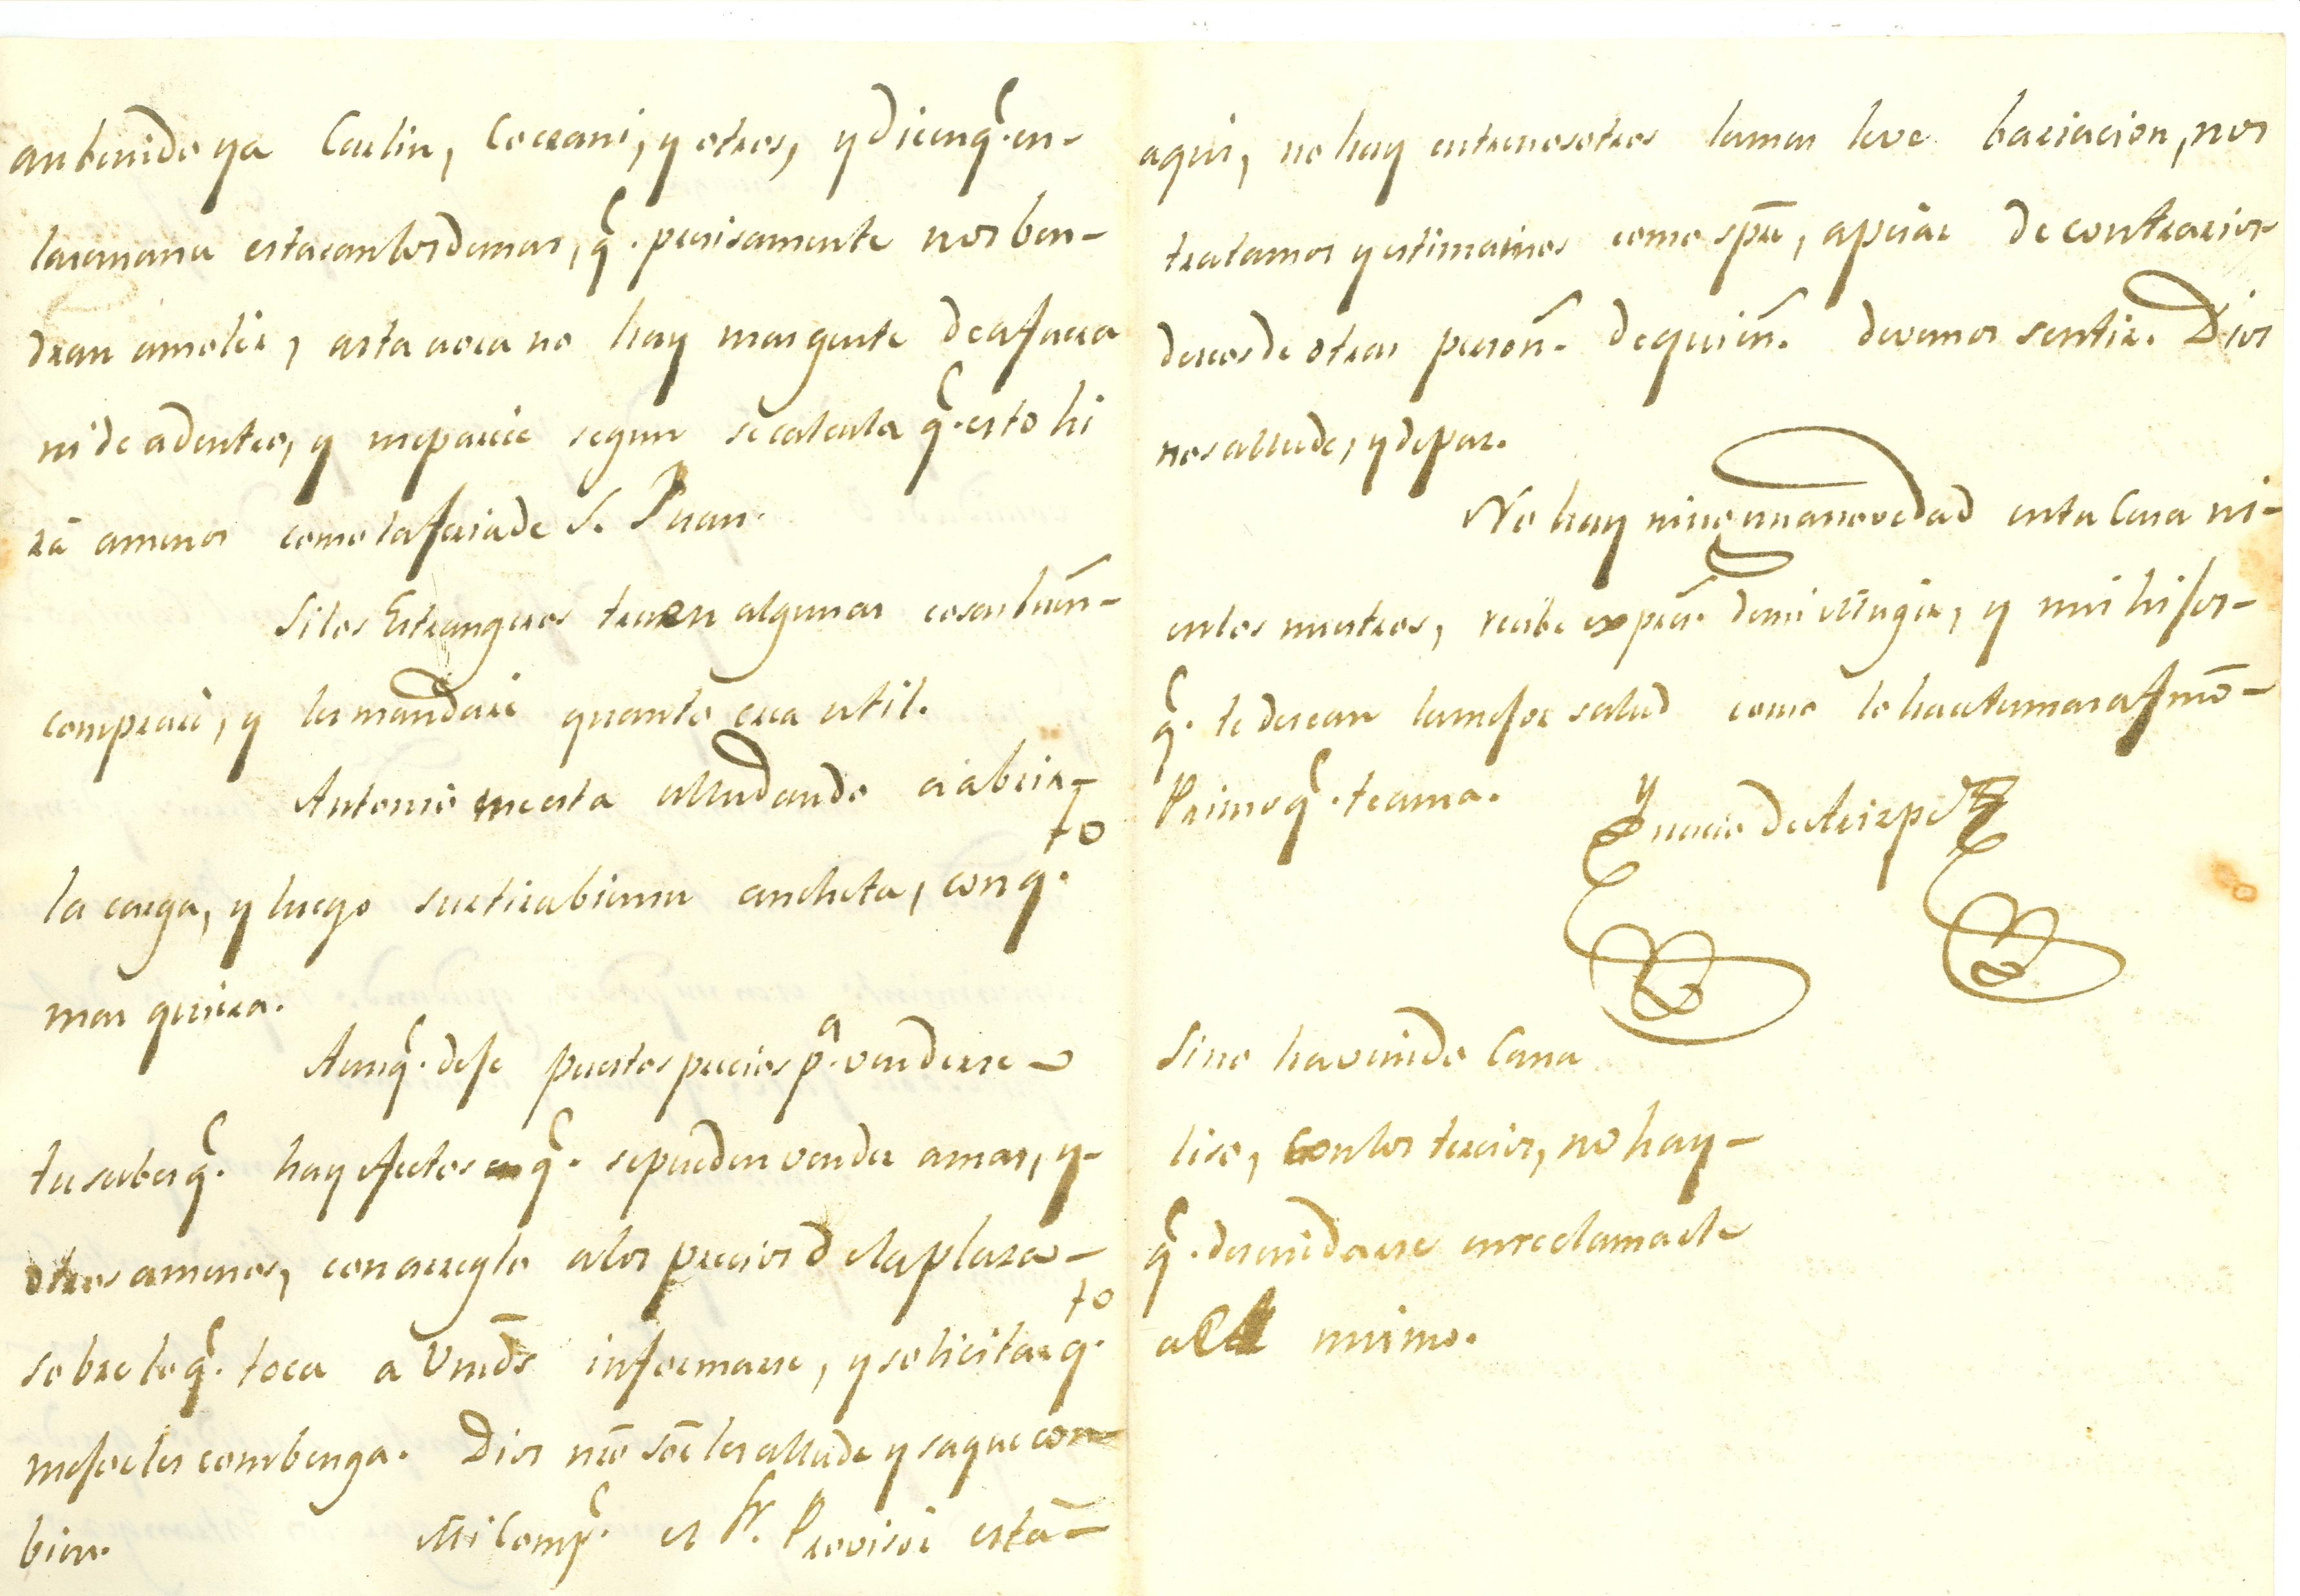 an benido ya Carlin, Cocrani, y otros, y dicen q.e en-
la semana esta con los demas, q.e precisamente nos ben-
dran amoler, asta aora no hay mas gente de afuera
ni de adentro, y me parece segun se calcula q.e esto hi
rá a menos como la feria de S. Juan.
Si los Estrangeros traen algunas cosas buen.-
compraré, y las mandaré quanto sea util.
Antonio me esta alludando a abrir-
la carga, y luego surtira bien su ancheta, con q.to
mas quiera.
Aunq.e dese puestos precios p.a venderse
tu sabes q.e hay efectos en q.e se pueden vender a mas, y-
otros a menos, con arreglo a los precios de la plaza-
sobre lo q.e toca a Vmds informarse, y solicitar q.to
mejor les combenga. Dios nro Sor les allude y saque con
bien. Mi Comp.e el Sr. Provisor está-
aqui, no hay entre nosotros la mas leve bariacion, nos
tratamos y estimamos como spre, apesar de contrarios
deseos de otras person.s de quien.s devemos sentir. Dios
nos allude, y de paz.
No hay ninguna novedad en ta Casa ni-
en los nuestros, recibe expres.s de mi Muger, y mis hijos-
q.e te desean la mejor salud como lo hace tu mas afmo-
Primo q.e te ama. Ygnacio de Arizpe
Si no ha venido Cana
liso, con los tercios, no hay-
q.e descuidarse en reclamarle
al mismo.